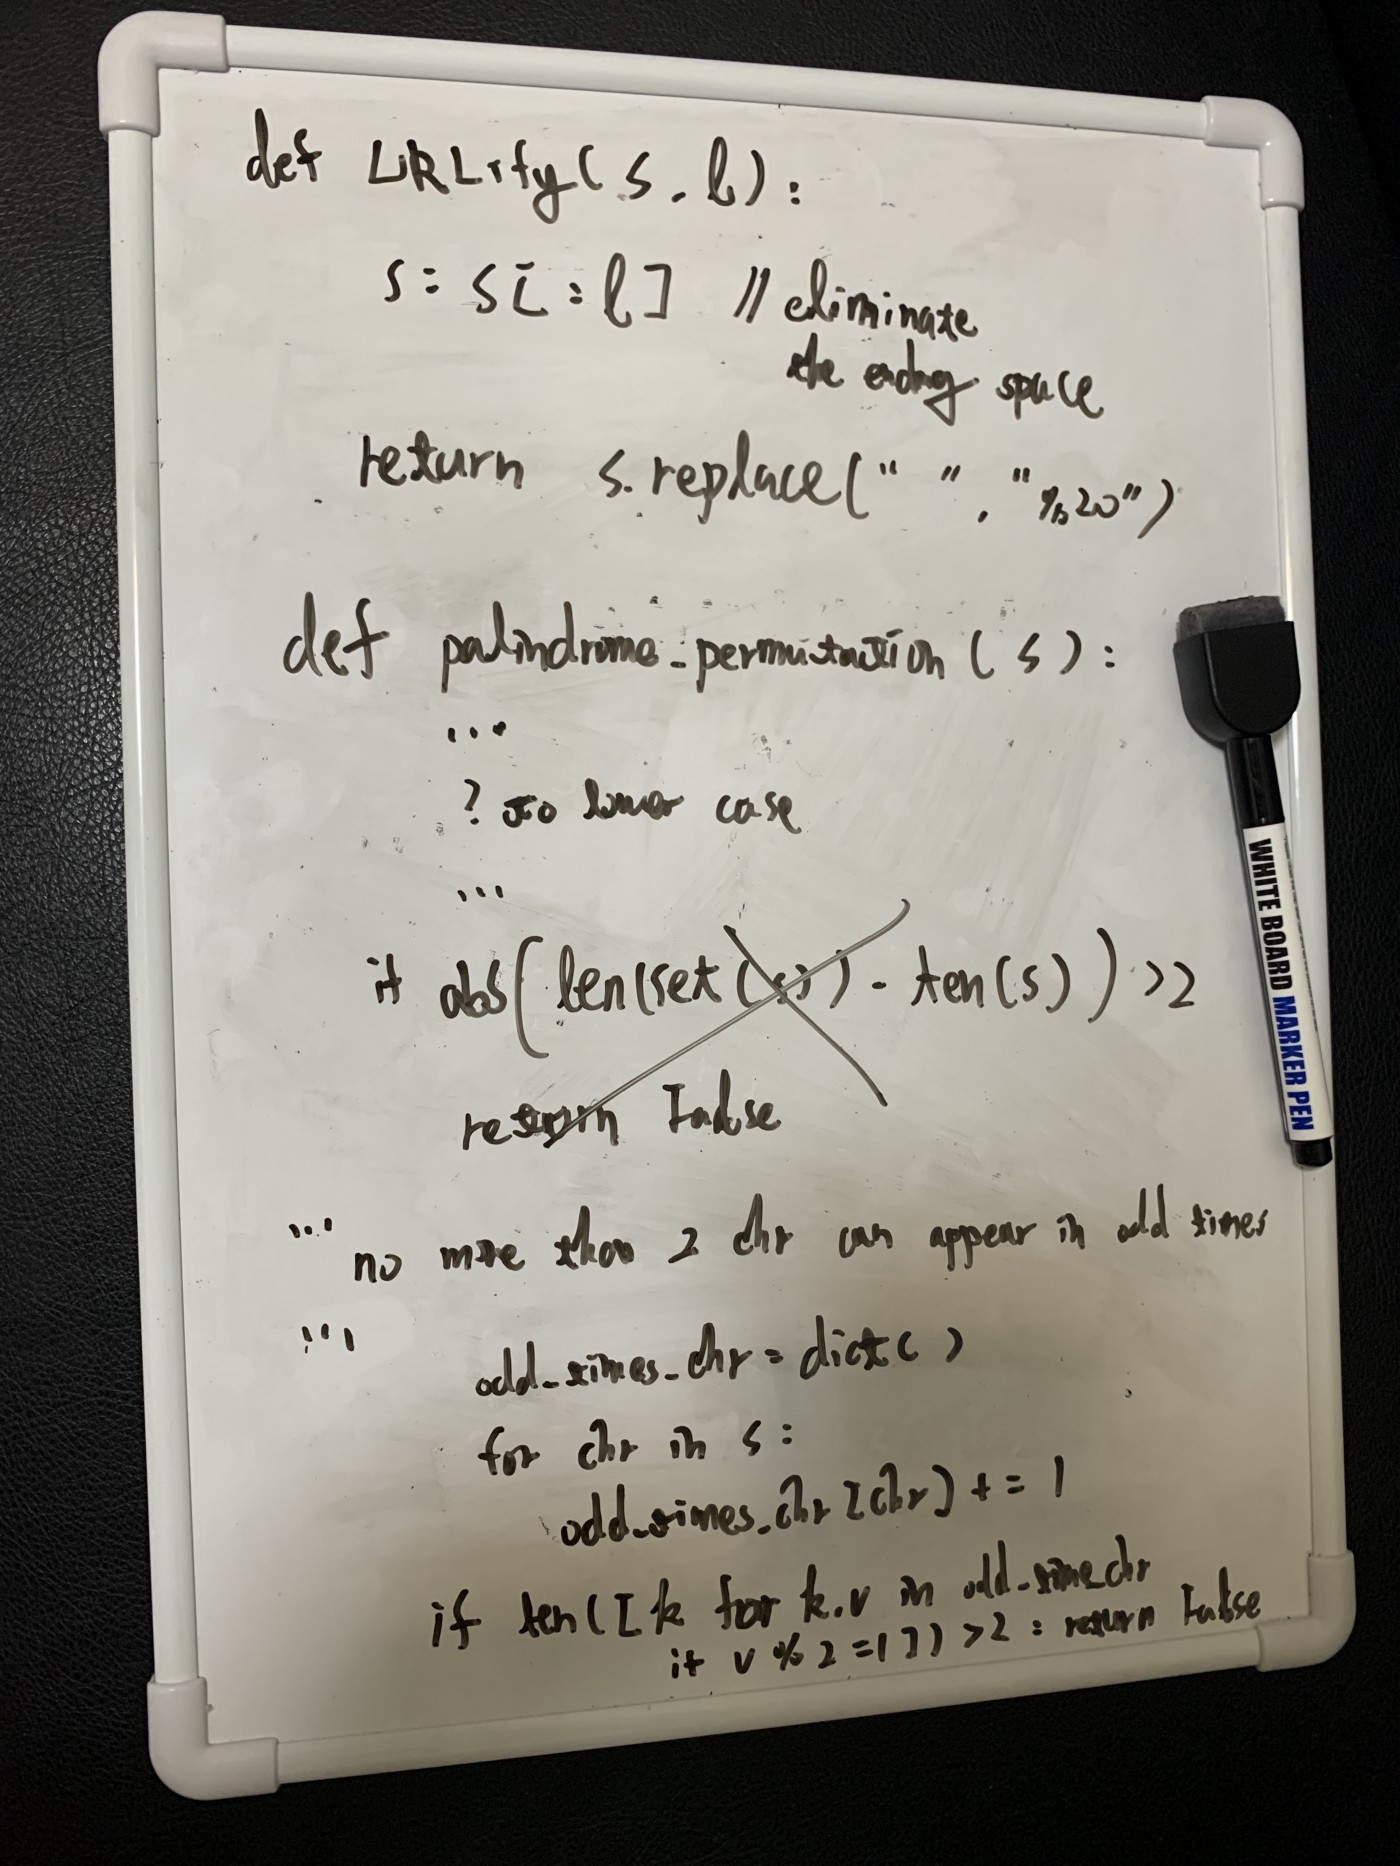 def URLify(s, l):
s = s[:l] // eliminate
the ending space
return s.replace(" ", "%20")
def palindrome_permutation(s):
'''
? to lower case
'''
if abs(len(set(s)) - len(s)) >2
return False
''' no more than 2 chr can appear in odd times
'''
odd_times_chr = dict()
for chr in s:
odd_times_chr[chr] += 1
if len([k for k,v in odd_time_chr
if v % 2 =1]) >2 : return False
WHITE BOARD MARKER PEN